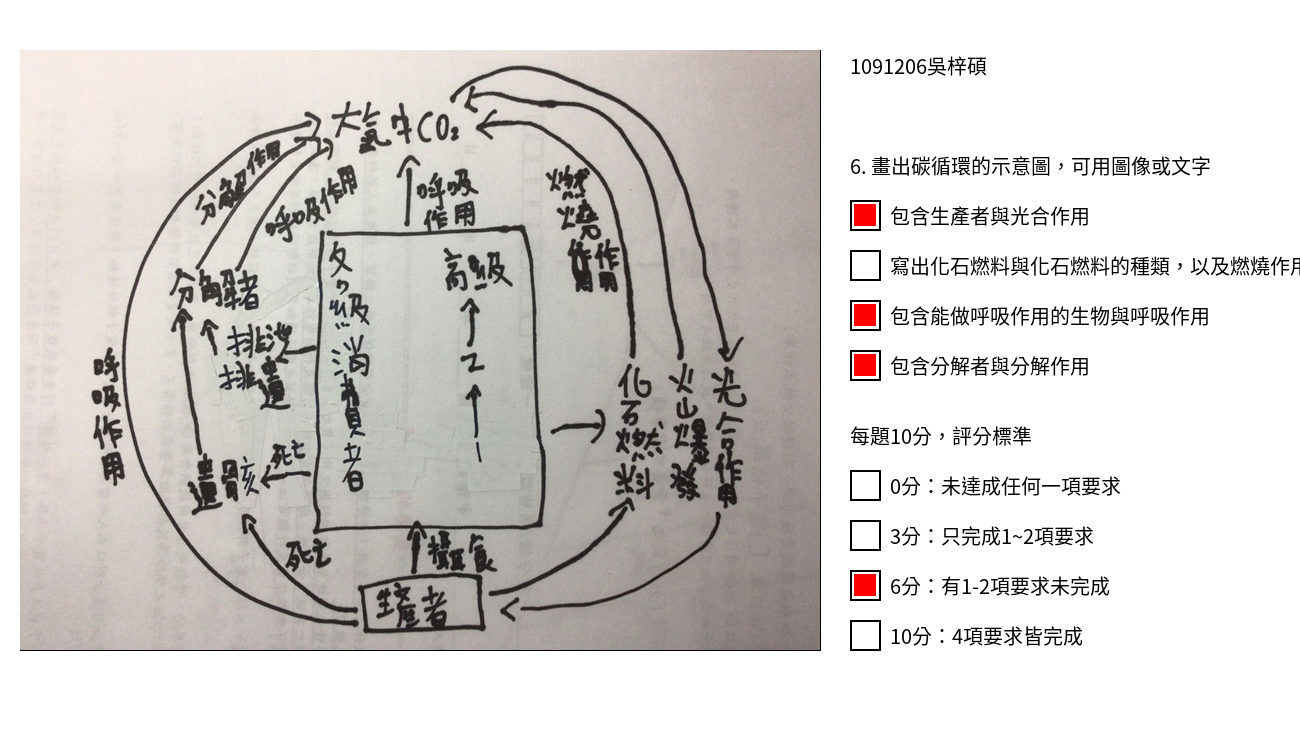 大氣中CO₂
分解作用
呼吸作用
呼吸
作用
燃燒作用
作用
分解者
各級消費者
高級
2
1
排泄
排遺
呼吸作用
死亡
遺骨亥
化石燃料
火山爆發
光合作用
死亡
攝食
生產者
1091206吳梓碩
6. 畫出碳循環的示意圖，可用圖像或文字
包含生產者與光合作用
寫出化石燃料與化石燃料的種類，以及燃燒作用
包含能做呼吸作用的生物與呼吸作用
包含分解者與分解作用
每題10分，評分標準
0分：未達成任何一項要求
3分：只完成1~2項要求
6分：有1-2項要求未完成
10分：4項要求皆完成